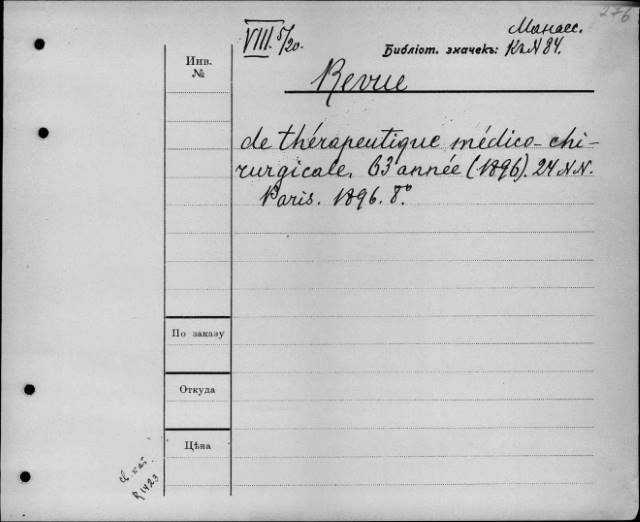 276
VIII. 5/20.
Манасс.
Библіот. значекъ: Кн N 84.
Инв.
№
Revue
de thérapeutique médico-chi-
rurgicale. 63 année (1896). 24 NN.
Paris. 1896. 8°
По заказу
Откуда
Цѣна
R 1423